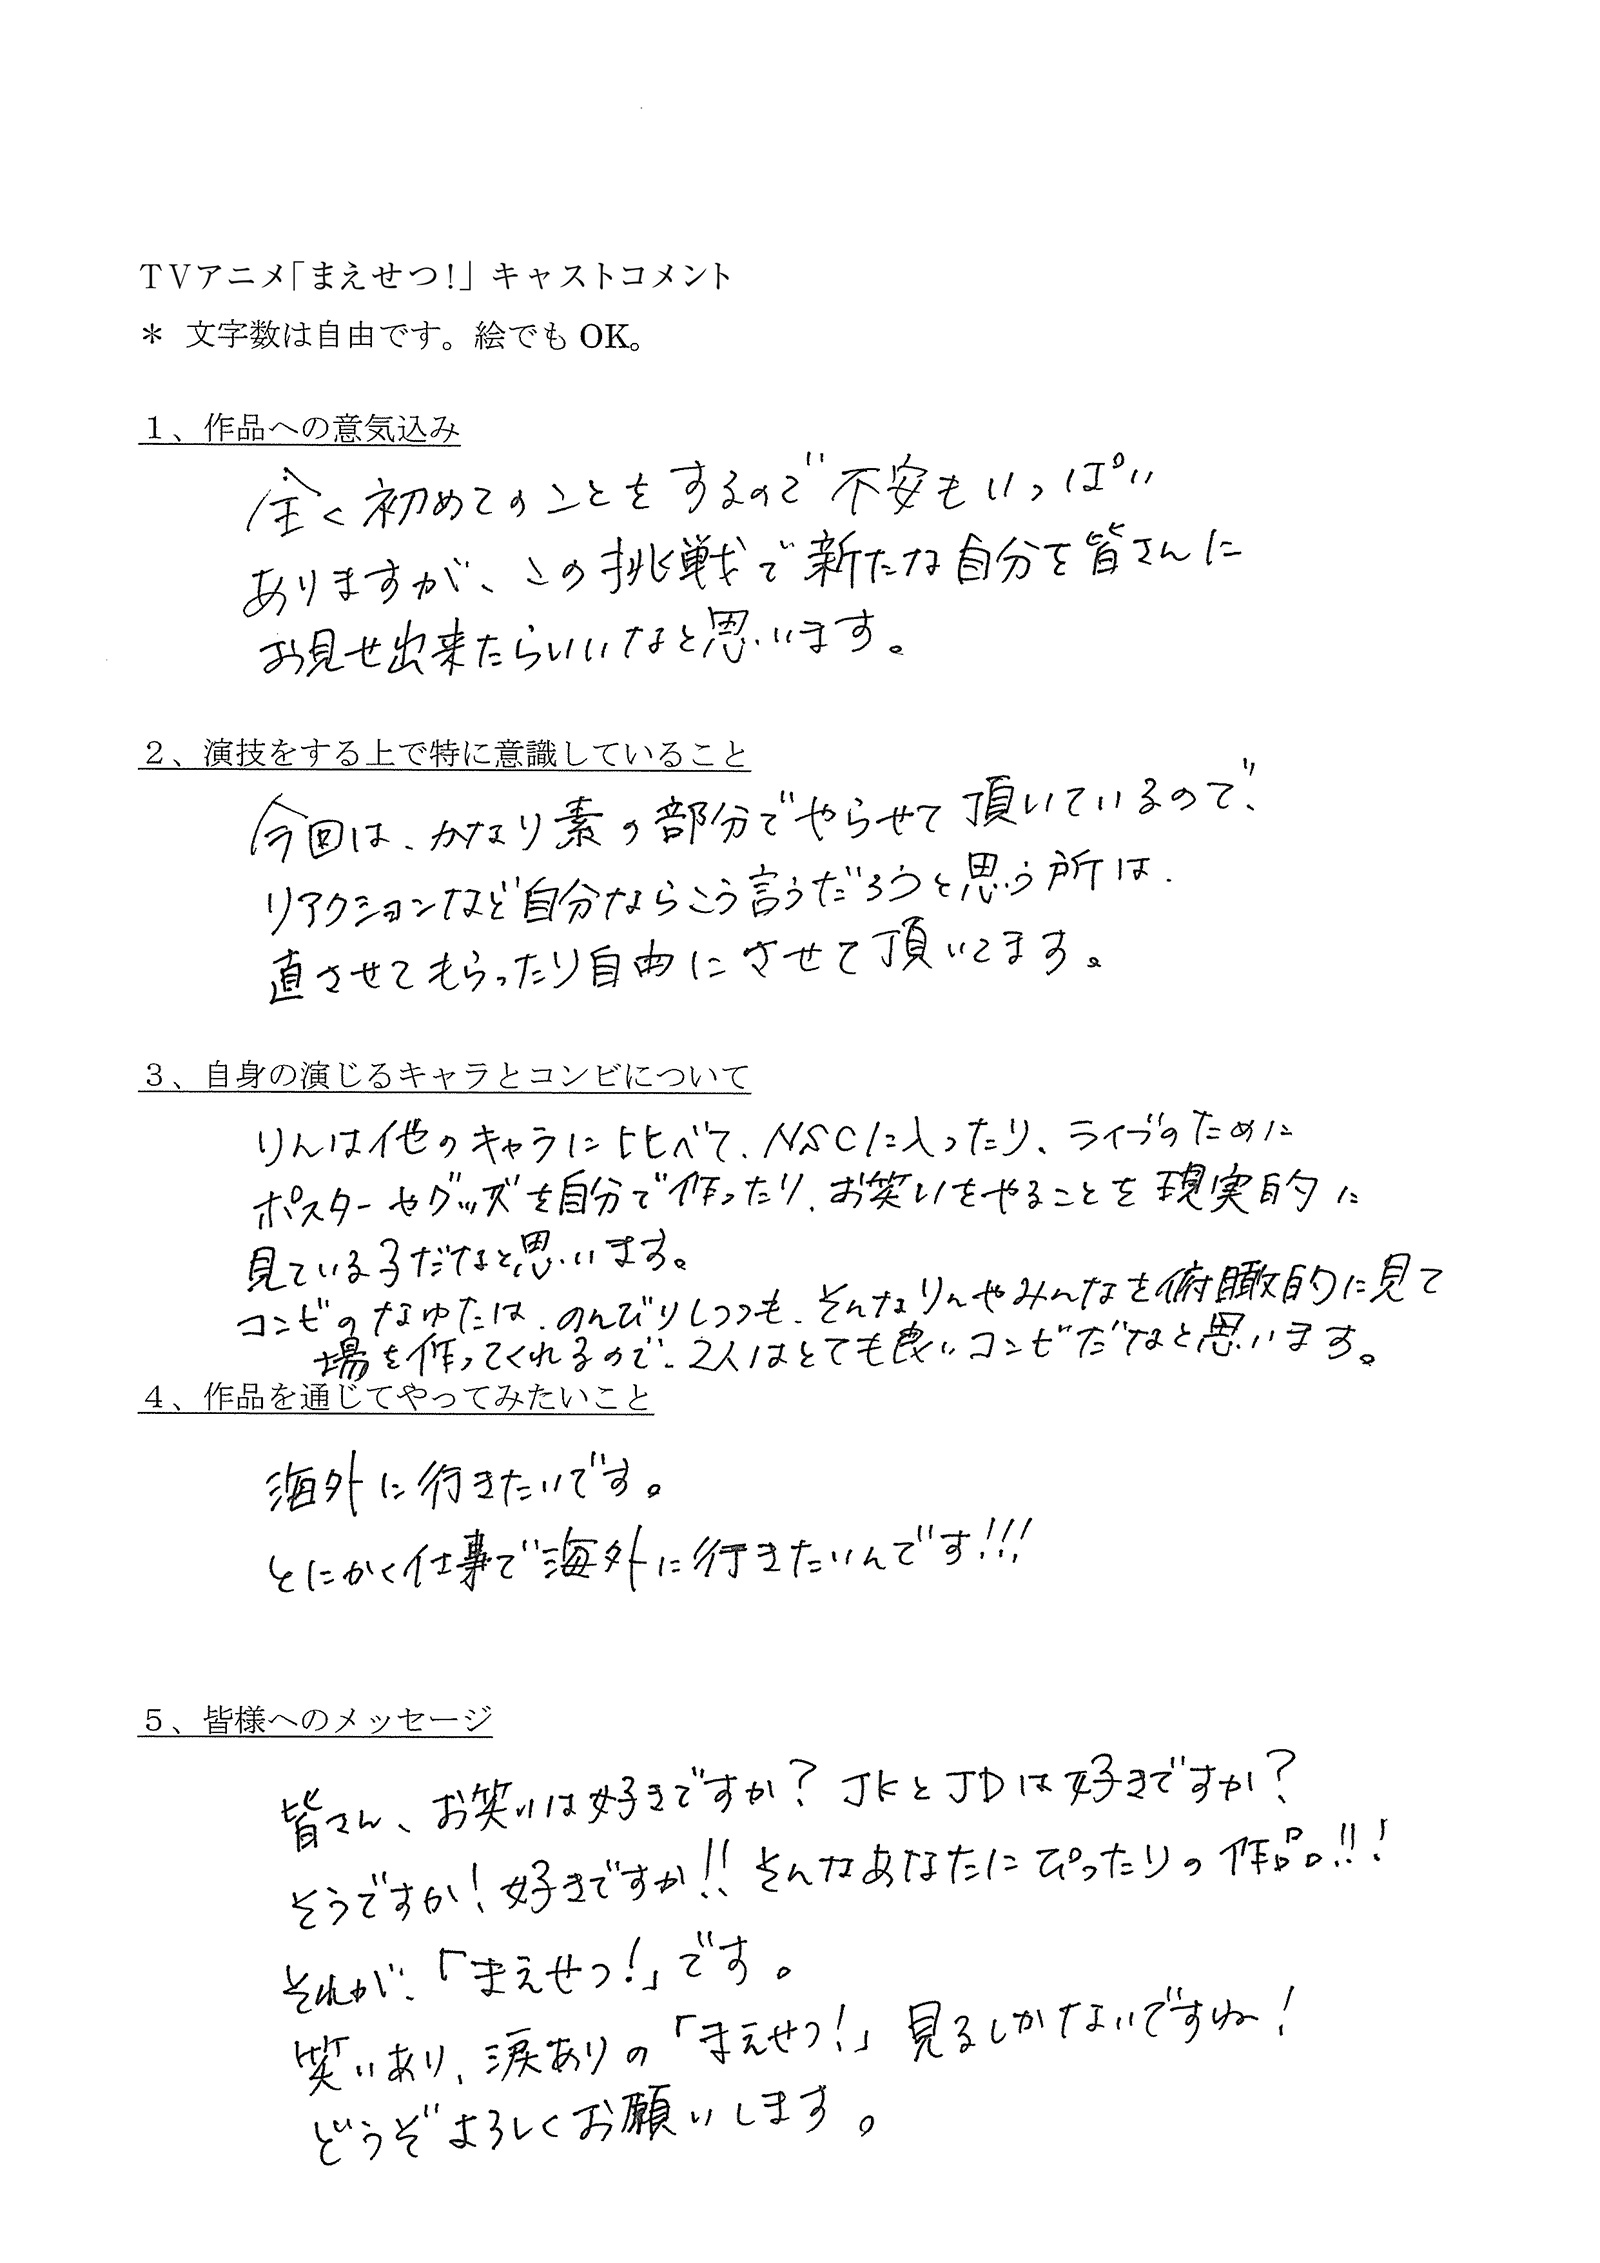 TVアニメ「まえせつ!」キャストコメント
＊ 文字数は自由です。絵でも OK。
１、作品への意気込み
全く初めてのことをするので不安もいっぱい
ありますが、この挑戦で新たな自分を皆さんに
お見せ出来たらいいなと思います。
２、演技をする上で特に意識していること
今回は、かなり素の部分でやらせて頂いているので、
リアクションなど自分ならこう言うだろうと思う所は、
直させてもらったり自由にさせて頂いてます。
３、自身の演じるキャラとコンビについて
りんは他のキャラに比べて、NSCに入ったり、ライブのために
ポスターやグッズを自分で作ったり、お笑いをやることを現実的に
見ている子だなと思います。
コンビのなゆたは、のんびりしつつも、そんなりんやみんなを俯瞰的に見て
場を作ってくれるので、2人はとても良いコンビだなと思います。
４、作品を通じてやってみたいこと
海外に行きたいです。
とにかく仕事で海外に行きたいんです!!!
５、皆様へのメッセージ
皆さん、お笑いは好きですか? JKとJDは好きですか?
そうですか! 好きですか!! そんなあなたにぴったりの作品!!!
それが、「まえせつ!」です。
笑いあり、涙ありの「まえせつ!」見るしかないですね!
どうぞよろしくお願いします。